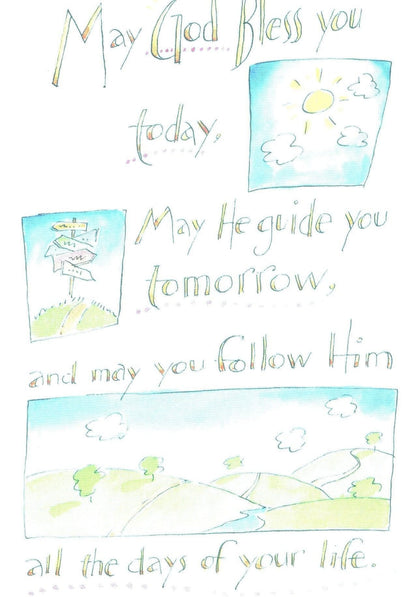 May God Bless you
today,
May He guide you
tomorrow,
and may you follow Him
all the days of your life.